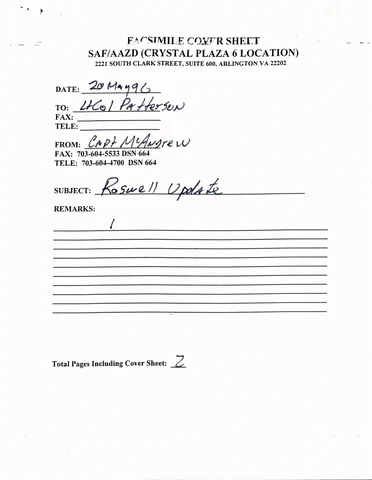 FACSIMILE COVER SHEET
SAF/AAZD (CRYSTAL PLAZA 6 LOCATION)
2221 SOUTH CLARK STREET, SUITE 600, ARLINGTON VA 22202
DATE: 20 May 96
TO: LtCol Patterson
FAX:
TELE:
FROM: Capt McAndrew
FAX: 703-604-5533 DSN 664
TELE: 703-604-4700 DSN 664
SUBJECT: Roswell Update
REMARKS:
Total Pages Including Cover Sheet: 2